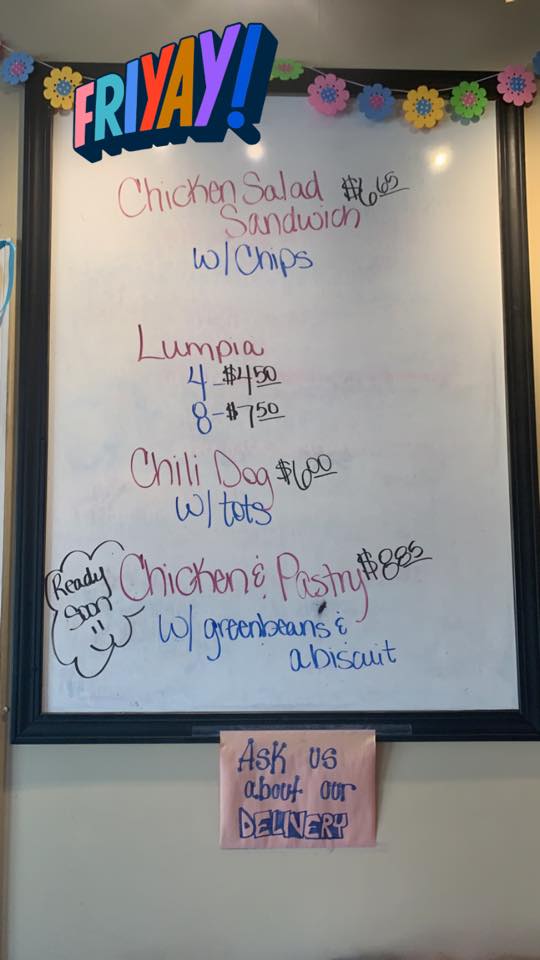 FRIYAY!
Chicken Salad $6.65
Sandwich
w/Chips
Lumpia
4-$4.50
8-$7.50
Chili Dog $6.00
w/tots
Ready
Soon
Chicken & Pastry $8.85
w/ greenbeans &
a biscuit
Ask us
about our
DELIVERY